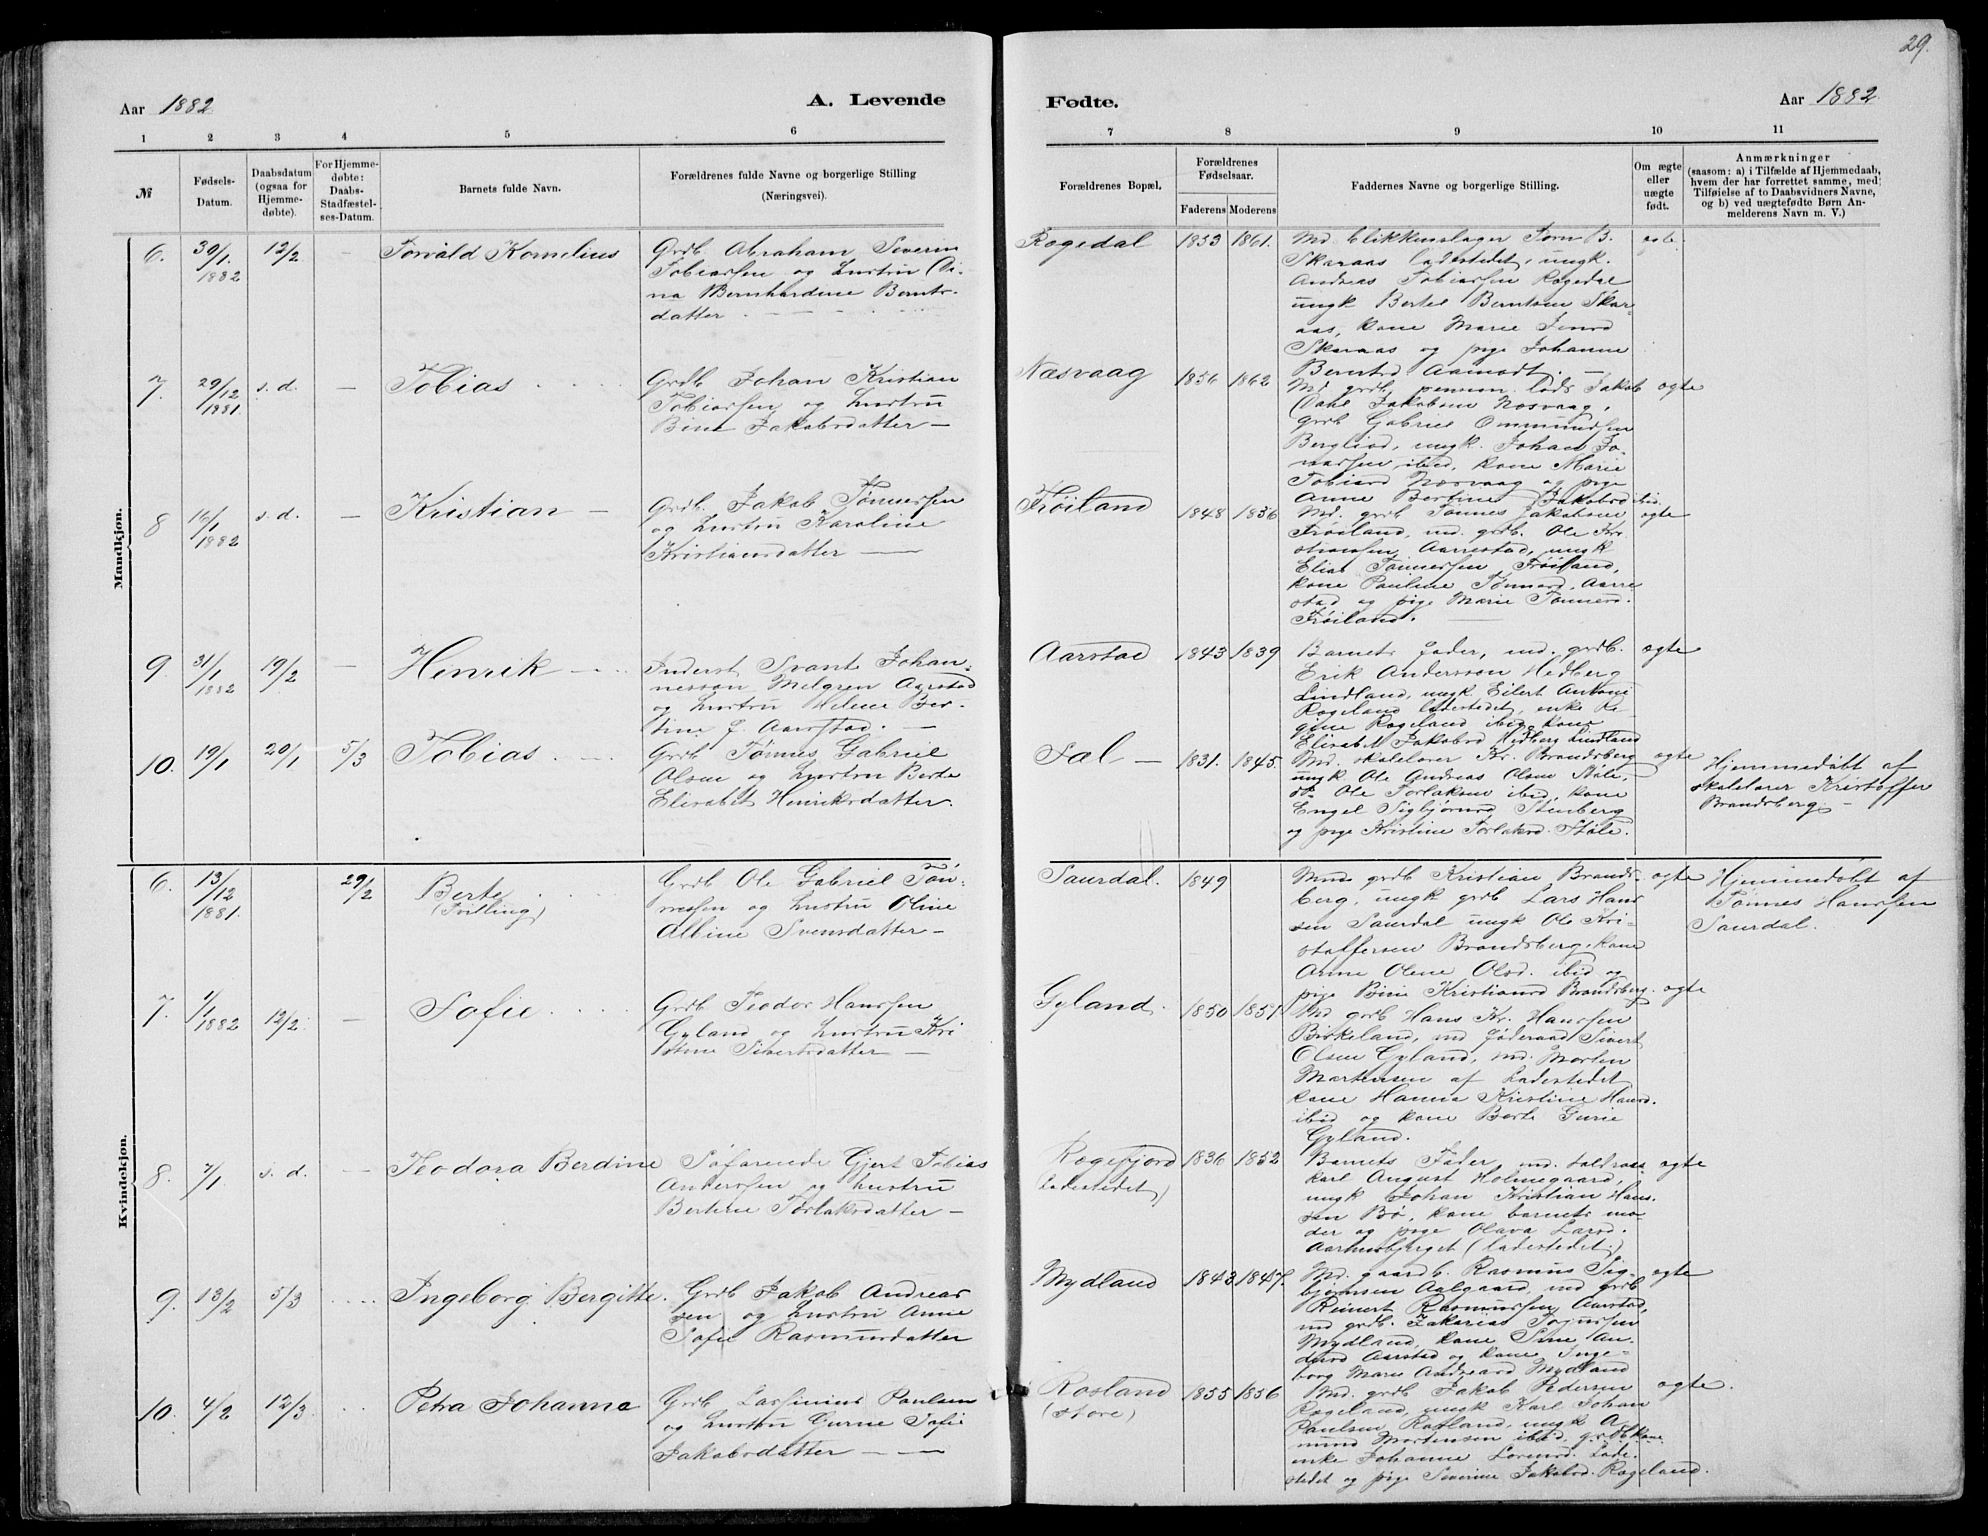 29.
Aar 1882
A. Levende
Fødte.
Aar 1882.
1 2 3 4 5 6 7 8 9 10 11
№
Fødsels-
Datum.
Daabsdatum
(ogsaa for
Hjemme-
døbte).
For Hjemme-
døbte:
Daabs-
Stadfæstel-
ses-Datum.
Barnets fulde Navn.
Forældrenes fulde Navne og borgerlige Stilling
(Næringsvei).
Forældrenes Bopæl.
Forældrenes
Fødselsaar.
Faderens Moderens
Faddernes Navne og borgerlige Stilling.
Om ægte
eller
uægte
født.
Anmærkninger
(saasom: a) i Tilfælde af Hjemmedaab,
hvem der har forrettet samme, med
Tilføielse af to Daabsvidners Navne,
og b) ved uægtefødte Børn An-
melderens Navn m. V.)
Mandkjøn.
6. 30/1. 1882 12/2 — Torvald Kornelius
Grdb Abraham Severin
Tobiassen og hustru
na Bernhardine Bernts-
datter
Rogedal 1853 1861.
Md. blikkenslager Tørn B.
Skaraas ladestedet, ungk.
Andreas Tobiassen Rogedal
ungk Bertel Berntsen Skar-
aas, kone Marie Jensd
Skaraas og pige Johanne
Berntsd Aamodt. —
ægte.
7. 29/12 1881. s. d. — Tobias
Grdb Johan Kristian
Tobiassen og hustru
Bine Jakobsdatter —
Næsvaag 1856 1862
Md grdb. pension. lods Jakob
Dahl Jakobsen Næsvaag,
grdb Gabriel Ommundsen
Bergliod, ungk. Johan To-
ibid, kone Marie
Tobiasd Næsvaag og pige
Anne Bertine Jakobsd ibid.
ægte
8 16/1 1882 s. d. — Kristian —
Grdb. Jakob Tønnessen
og hustru Karoline
Kristiansdatter —
Frøiland 1848 1836
Md. grdb Tønnes Jakobsen
Frøiland, md. grdb. Ole Kri
stiansen Aarrestad, ungk
Elias Tønnessen Frøiland,
kone Pauline Tønnesd. Aarre
stad og pige Marie Tønnesd.
Frøiland.
ægte
9. 31/1 1882 19/2 — Henrik
Inderst Svant Johan-
nesson Melgren Aarstad
og hustru Helene Ber-
tine J. Aarstad. —
Aarstad 1843 1839
Barnets fader, md. grdb.
Erik Andersson Hedberg
Lindland, ungk. Eilert Antoni
Rogeland ladestedet, enke Re-
gine Rogeland ibid, kone
Elisabet Jakobsd Hedberg Lindland
ægte
10. 19/1 20/1 5/3 Tobias
Grdb Tønnes Gabriel
Olsen og hustru Berte
Elisabet Henriksdatter.
Fal — 1831. 1845.
Md. skolelærer Kr. Brandsberg
ungk Ole Andreas Olsen Støle,
do. Ole Torlaksen ibid, kone
Engel Sigbjørnsd Stenberg
og pige Kristine Torlaksd. Støle.
ægte
Hjemmedøbt af
skolelærer Kristoffer
Brandsberg —
Kvindekjøn.
6. 13/12 1881. 29/2 Berte
(Tvilling)
Grdb Ole Gabriel Tøn-
nessen og hustru Oline
Albine Svensdatter —
Saurdal. 1849
Md grdb Kristian Brands-
berg, ungk grdb Lars Hans
sen Saurdal ungk Ole Kri-
stoffersen Brandsberg, kone
Anne Olene Olsd. ibid og
pige Bine Kristiansd Brandsberg.
ægte
Hjemmedøbt af
Tønnes Hanssen
Saurdal.
7. 1/1 1882 12/2. — Sofie
Grdb Teodor Hanssen
Gyland og hustru Kri
stine Sivertsdatter —
Gyland. 1850 1851
Md grdb Hans Kr. Hanssen
Birkeland, md føderaad Sivert
Olsen Gyland, md. Morten
Martensen af Ladestedet
kone Hanna Kristine Hansd.
ibid og kone Berte Gurie
Gyland.
ægte
8. 7/1. s. d. — Teodora Berdine
Søfarende Gjert Tobias
Anderssen og hustru
Bertine Torlaksdatter —
Rogefjord
(ladestedet)
1836 1852
Barnets Fader, md.
Karl August Holmegaard,
ungk Johan Kristian Hans-
sen Bø, kone barnets mo-
der og pige Olava Larsd.
Aarhusbjerget (ladestedet)
ægte
9. 13/2 5/3 Ingeborg Bergitte.
Grdb Jakob Andreas
sen og hustru Anne
Sofie Rasmusdatter
Mydland 1843 1847.
Md. gaardb. Rasmus Sig-
bjørnsen Aalgaard, md grdb
Reinert Rasmussen Aarstad,
md grdb. Zakarias
Mydland, kone Sine An-
dersd Aarstad og kone Inge-
borg Marie Andreasd Mydland
ægte
10. 4/2 12/3 Petra Johanna
Grdb Paulsen
og hustru Gurine Sofie
Jakobsdatter —
Rosland
(store)
1855 1856
Md. grdb Jakob Pedersen
Rogeland, ungk Karl Johan
Paulsen Rosland, ungk A
mund Mortensen ibid, grdbkone
enke Johanne Larsd. Lade-
stedet og pige Severine Jakobsd. Rogeland.
ægte